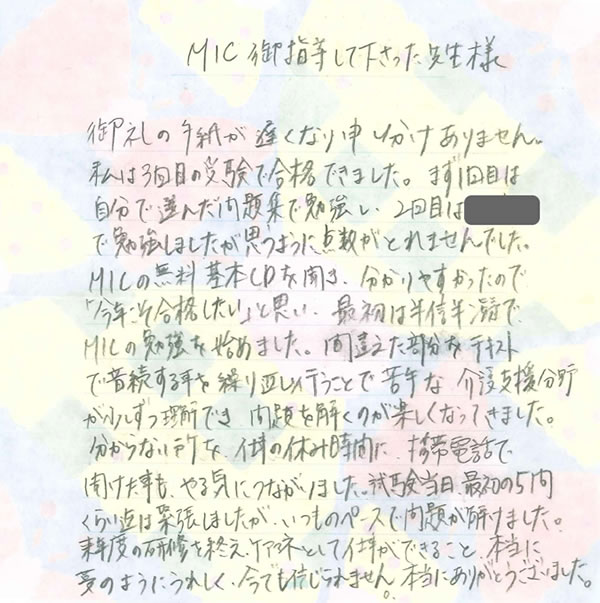 MIC 御指導して下さった先生様
御礼の手紙が遅くなり申し分けありません。
私は3回目の受験で合格できました。まず1回目は
自分で選んだ問題集で勉強し、2回目は
で勉強しましたが思うように点数がとれませんでした。
MICの無料基本CDを聞き、分かりやすかったので
「今年こそ合格したい」と思い、最初は半信半疑で、
MICの勉強を始めました。間違えた部分をテキスト
で音読する事を繰り返し行うことで苦手な介護支援分野
が少しずつ理解でき問題を解くのが楽しくなってきました。
分からない所を、仕事の休み時間に、携帯電話で
聞けた事も、やる気につながりました。試験当日、最初の5問
くらい迄は緊張しましたが、いつものペースで問題が解けました。
来年度の研修を終え、ケアマネとして仕事ができること、本当に
夢のようにうれしく、今でも信じられません。本当にありがとうございました。